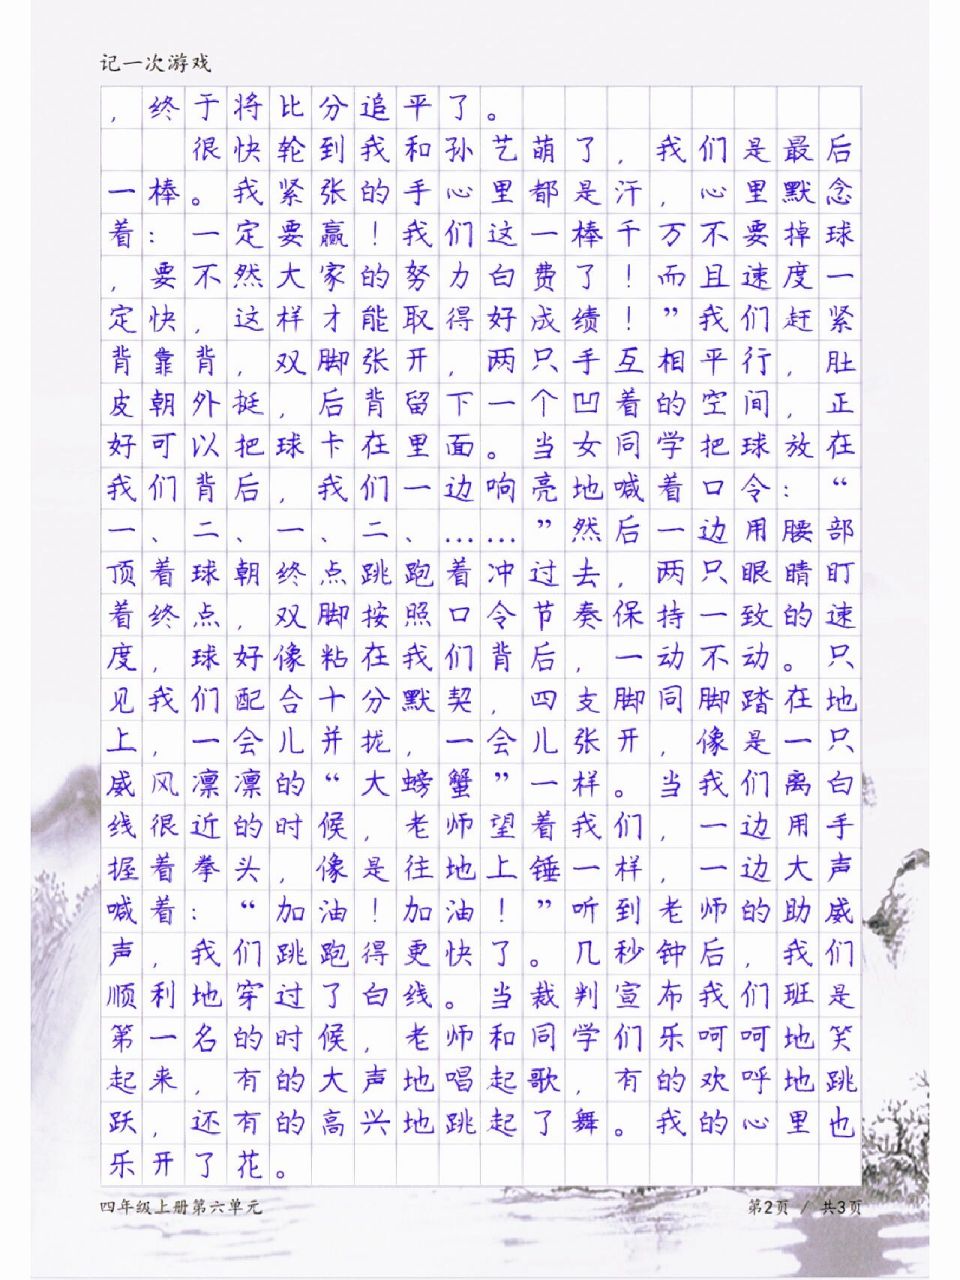 记一次游戏
，终于将比分追平了。
很快轮到我和孙艺萌了，我们是最后
一棒。我紧张的手心里都是汗，心里默念
着：一定要赢！我们这一棒千万不要掉球
，要不然大家的努力白费了！而且速度一
定快，这样才能取得好成绩！”我们赶紧
背靠背，双脚张开，两只手互相平行，肚
皮朝外挺，后背留下一个凹着的空间，正
好可以把球卡在里面。当女同学把球放在
我们背后，我们一边响亮地喊着口令：“
一、二、一、二、……”然后一边用腰部
顶着球朝终点跳跑着冲过去，两只眼睛盯
着终点，双脚按照口令节奏保持一致的速
度，球好像粘在我们背后，一动不动。只
见我们配合十分默契，四支脚同脚踏在地
上，一会儿并拢，一会儿张开，像是一只
威风凛凛的“大螃蟹”一样。当我们离白
线很近的时候，老师望着我们，一边用手
握着拳头，像是往地上锤一样，一边大声
喊着：“加油！加油！”听到老师的助威
声，我们跳跑得更快了。几秒钟后，我们
顺利地穿过了白线。当裁判宣布我们班是
第一名的时候，老师和同学们乐呵呵地笑
起来，有的大声地唱起歌，有的欢呼地跳
跃，还有的高兴地跳起了舞。我的心里也
乐开了花。
四年级上册第六单元 第2页 / 共3页